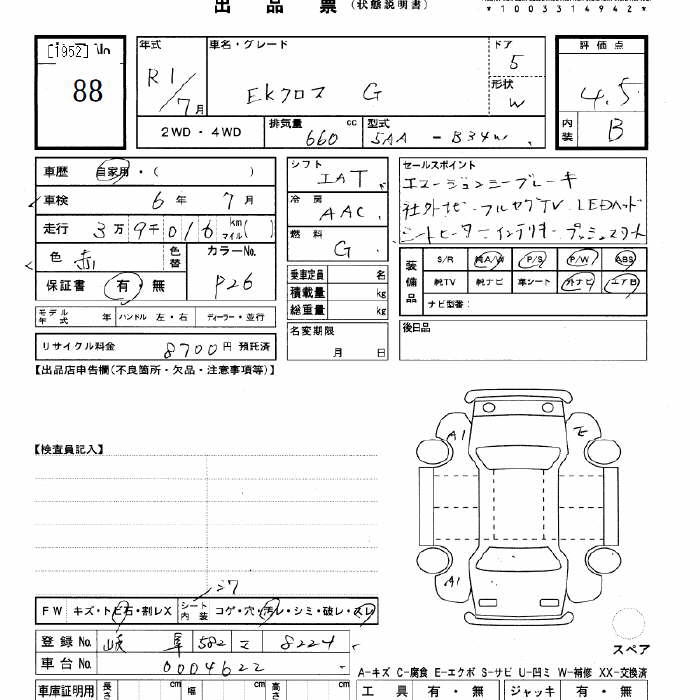 出品票(状態説明書)
*1003314942*
[1952]
88
年式 R1/7月
車名・グレード EKクロス G
ドア 5
形状 W
評価点 4.5
内装 B
2WD・4WD
排気量 660 cc
型式 5AA - B34W
車歴 自家用・( )
車検 6年 7月
走行 3万9千016 km マイル( )
色 赤 色替
カラーNo. P26
保証書 有・無
シフト IAT
冷房 AAC
燃料 G
乗車定員 名
積載量 kg
総重量 kg
名変期限 月 日
セールスポイント
エマージェンシーブレーキ
社外ナビ フルセグTV LEDヘッド
シートヒーター インテリキー プッシュスタート
装備品 S/R 純A/W P/S P/W ABS
純TV 純ナビ 革シート 外ナビ エアB
ナビ型番:
後日品
モデル年式 年 ハンドル 左・右 ディーラー・並行
リサイクル料金 8700円 預託済
【出品店申告欄(不良箇所・欠品・注意事項等)】
【検査員記入】
A1
E
A1
シワ
FW キズ・トビ石・割レX シート内装 コゲ・穴・汚レ・シミ・破レ・スレ
登録No. 岐阜 582 マ 8224
車台No. 0004622
スペア
A-キズ C-腐食 E-エクボ S-サビ U-凹ミ W-補修 XX-交換済
車庫証明用 長さ cm 幅 cm 高さ cm
工具 有・無 ジャッキ 有・無